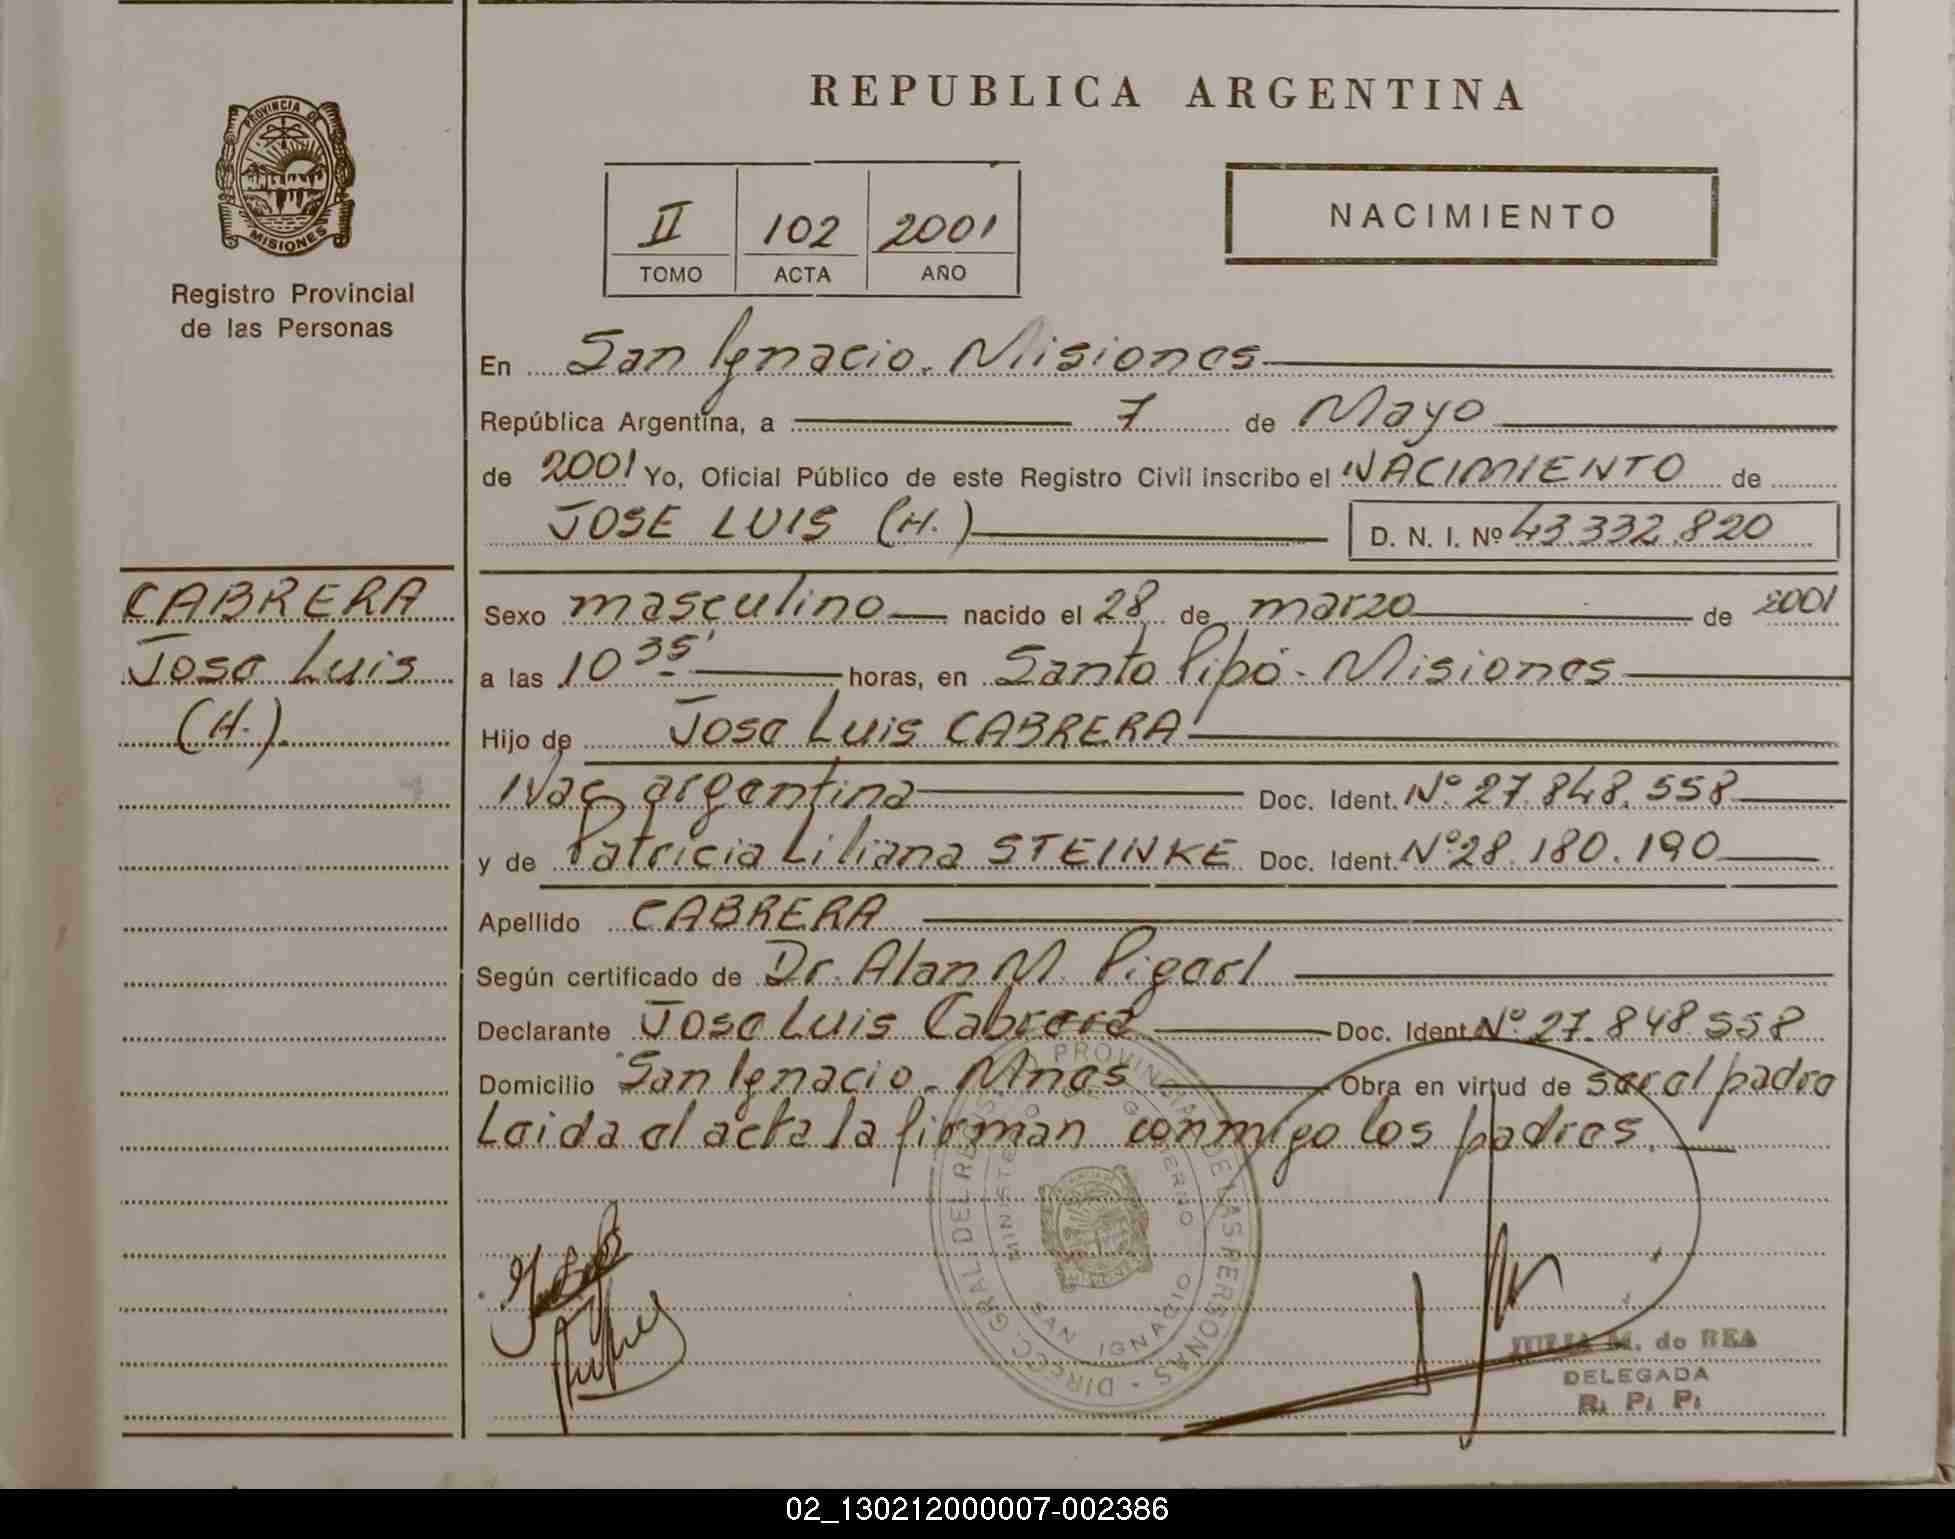 REPUBLICA ARGENTINA
PROVINCIA DE
MISIONES
Registro Provincial
de las Personas
II 102 2001
TOMO ACTA AÑO
NACIMIENTO
En San Ignacio. Misiones
República Argentina, a 7 de Mayo
de 2001 Yo, Oficial Público de este Registro Civil inscribo el NACIMIENTO de
JOSE LUIS (H.) D. N. I. Nº 43.332.820
CABRERA
Jose Luis
(H.)
Sexo masculino nacido el 28 de marzo de 2001
a las 10 35' horas, en Santo Pipó - Misiones
Hijo de Jose Luis CABRERA
Nac. argentina Doc. Ident. Nº 27.848.558
y de Patricia Liliana STEINKE Doc. Ident. Nº 28.180.190
Apellido CABRERA
Según certificado de Dr. Alan M.
Declarante Jose Luis Cabrera Doc. Ident. Nº 27.848.558
Domicilio San Ignacio - Mnes Obra en virtud de ser el padre
Leida el acta la firman conmigo los padres.
DIREC. GRAL. DEL REGISTRO PROVINCIAL DE LAS PERSONAS
MINISTERIO DE GOBIERNO
SAN IGNACIO
M. de REA
DELEGADA
R. P. P.
02_130212000007-002386